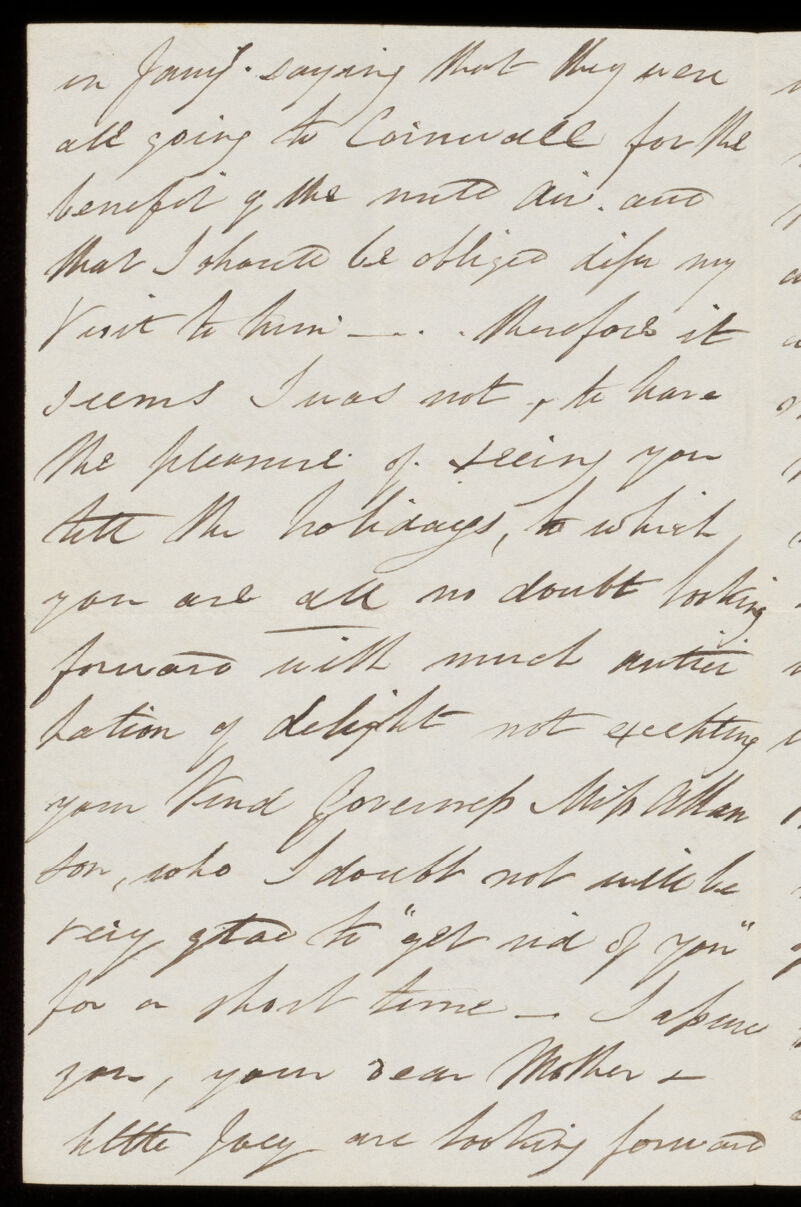 in Jany. saying that they were
all going to Cornwall for the
benefit of the mild air. and
that I should be obliged defer my
Visit to him — . . therefore it
seems I was not, to have
the pleasure of seeing you
till the holidays, to which
you are all no doubt looking
forward with much antici
pation of delight not excepting
your kind Governess Miss Allan
son, who I doubt not will be
very glad to "get rid of you"
for a short time — I assure
you, your dear Mother &
little Joey are looking forward